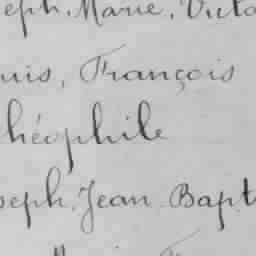 eph, Marie, Victo
uis, François
héophile
seph, Jean Bapt